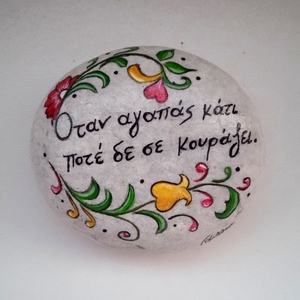 Όταν αγαπάς κάτι
ποτέ δε σε κουράζει.